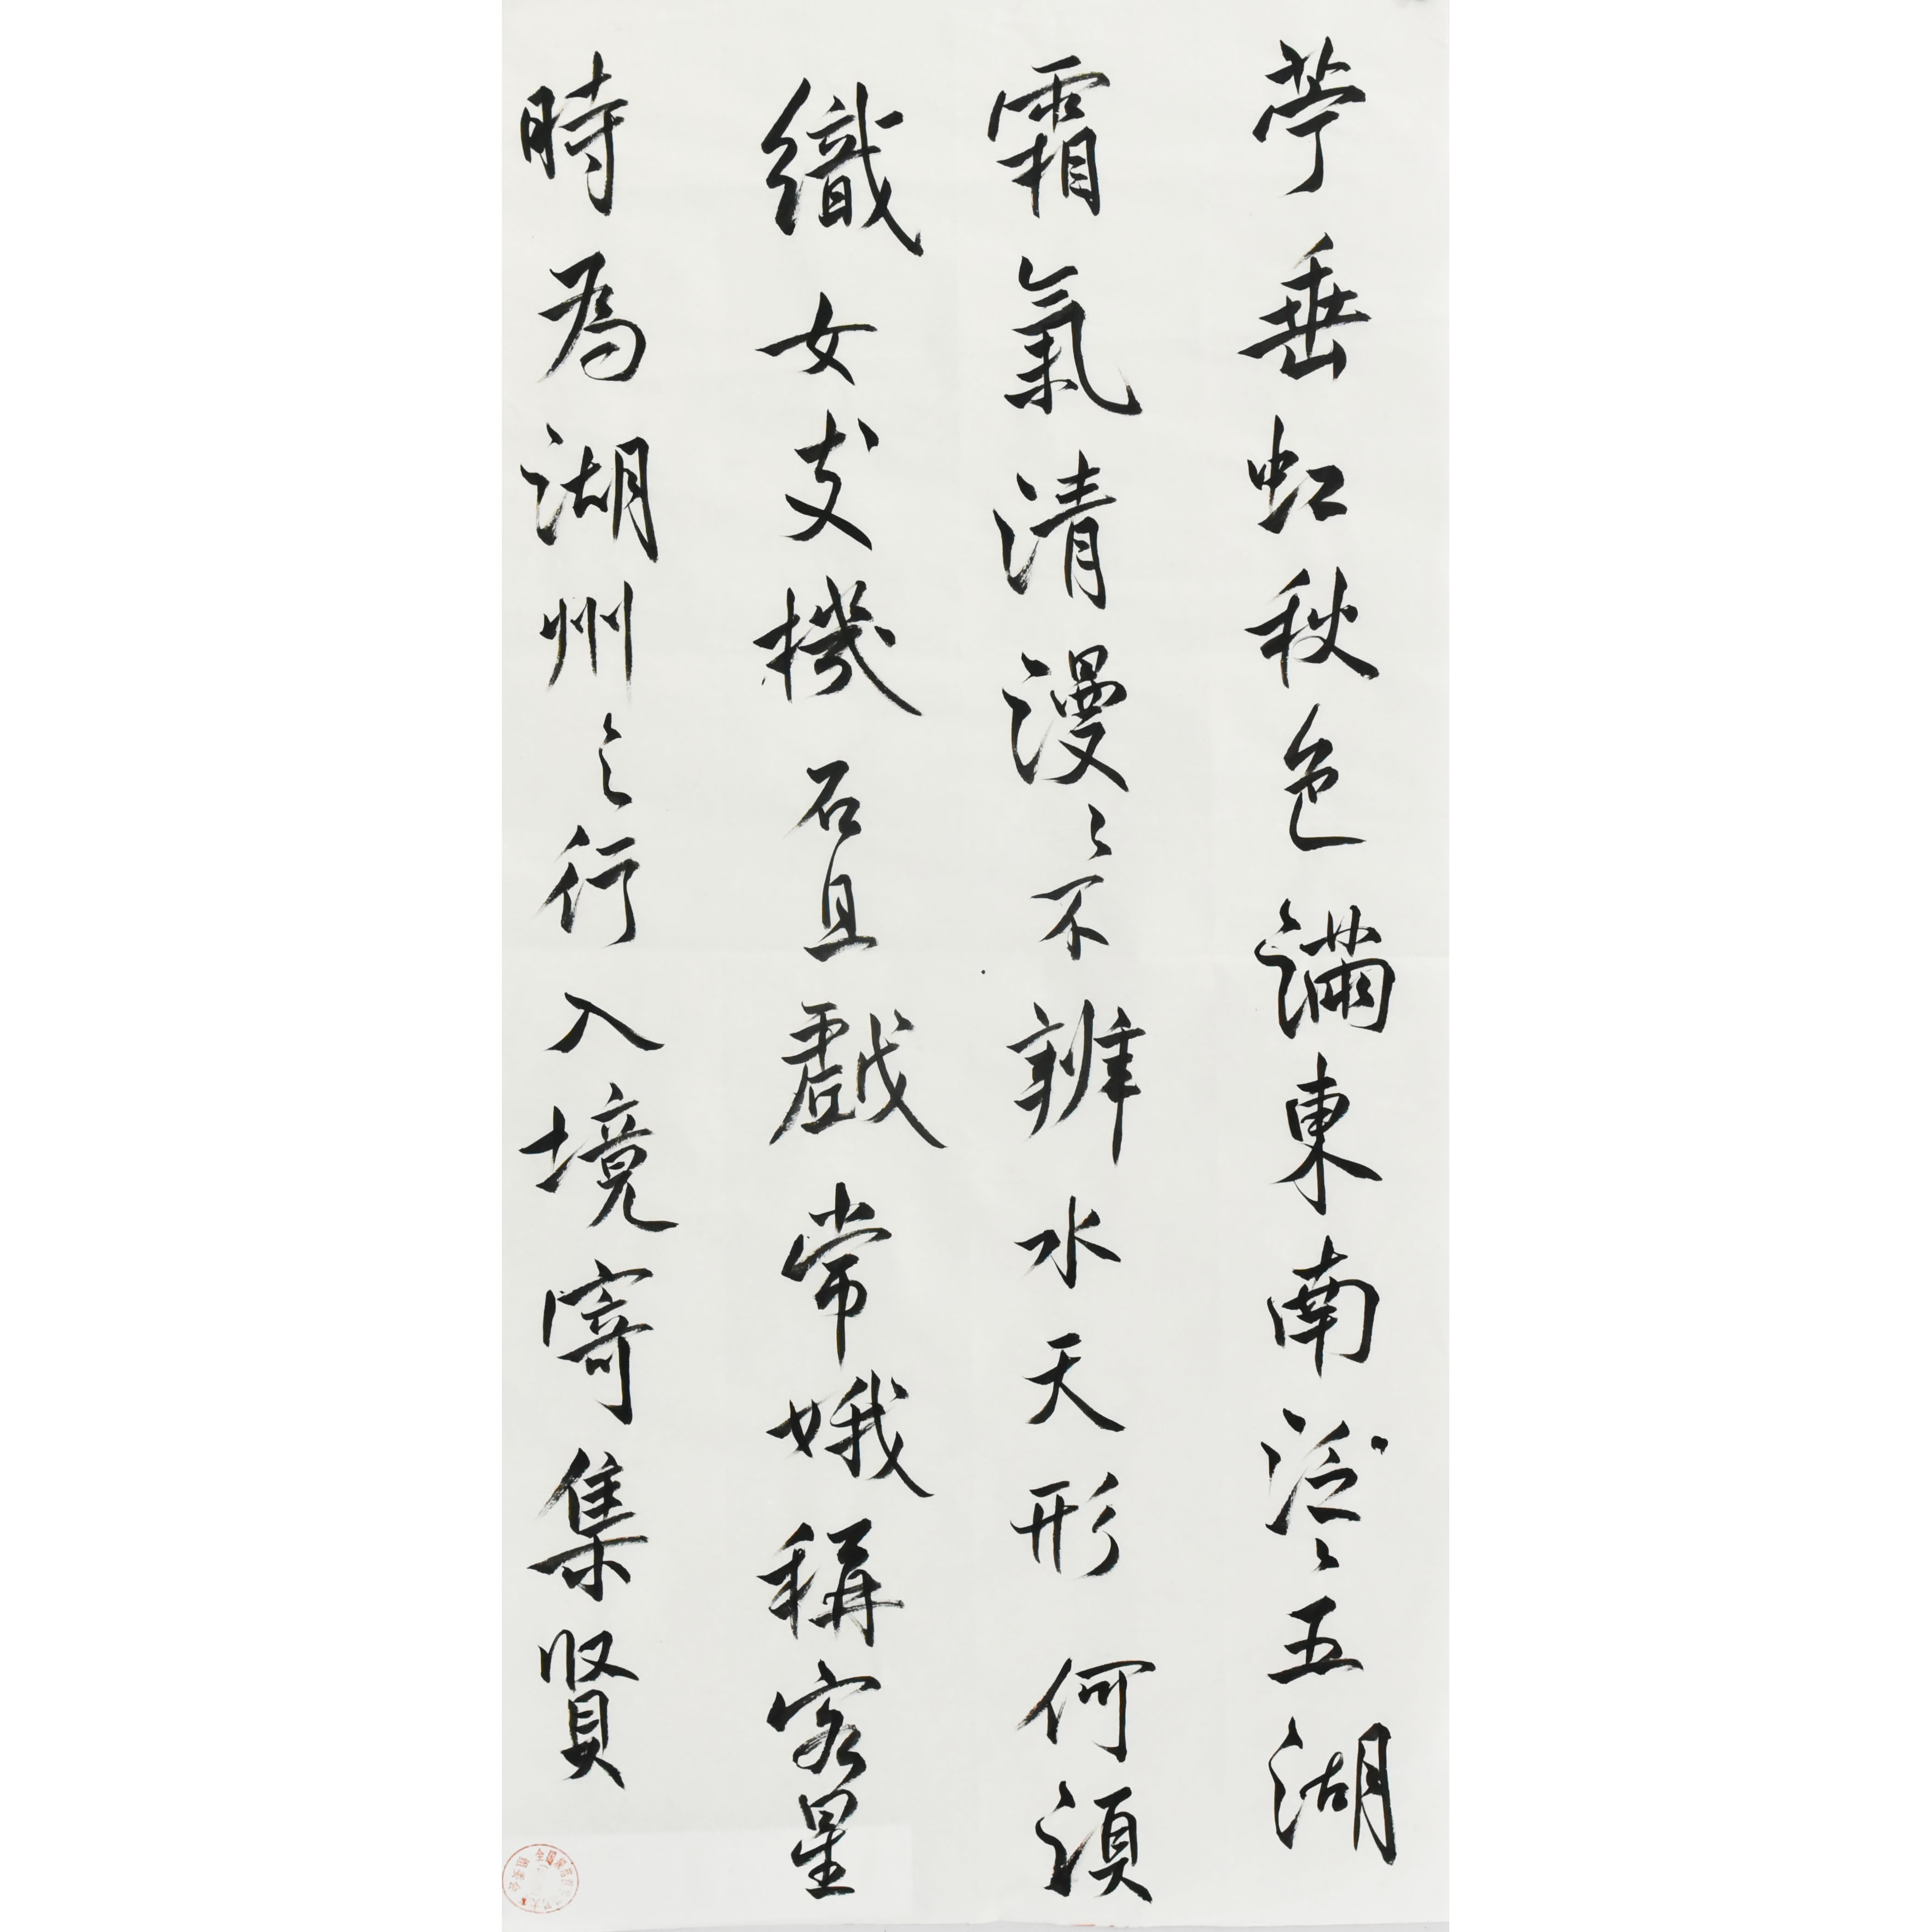 苧垂虹秋色滿東南泛〻五湖
霜氣清漫〻不辨水天形何須
織女支機石且戲常娥稱客星
時為湖州之行入境寄集賢